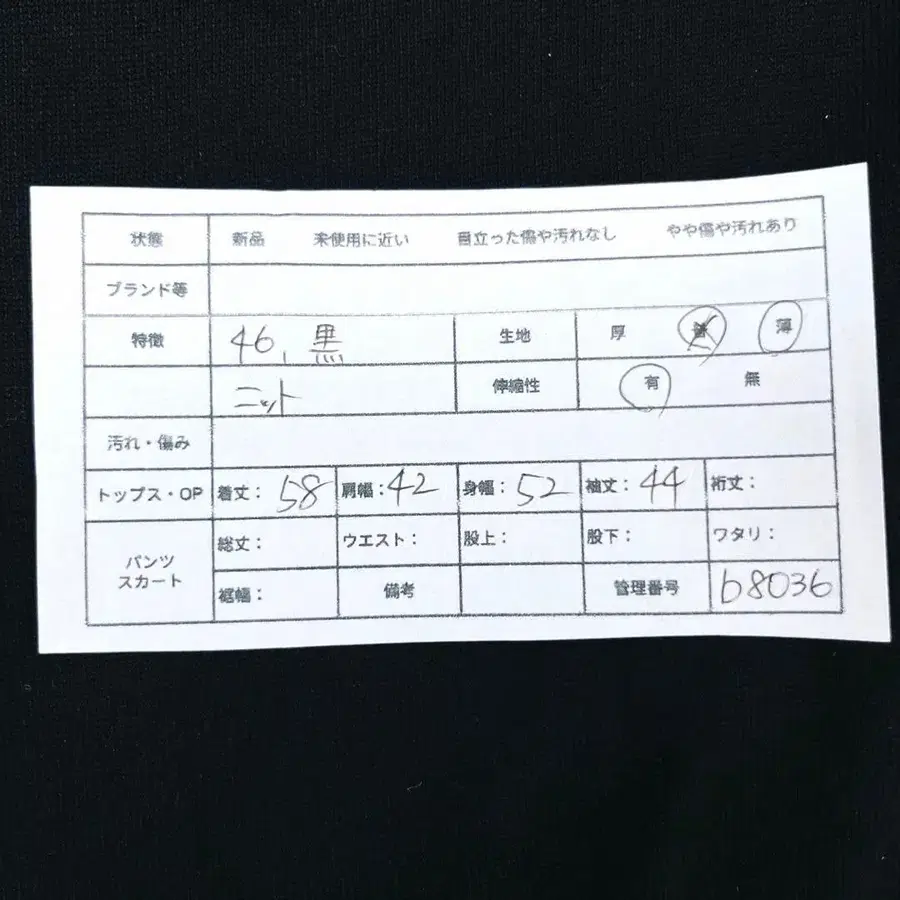 状態 新品 未使用に近い 目立った傷や汚れなし やや傷や汚れあり
ブランド等
特徴 46, 黒 生地 厚 普 薄
ニット 伸縮性 有 無
汚れ・傷み
トップス・OP 着丈: 58 肩幅: 42 身幅: 52 袖丈: 44 裄丈:
パンツ スカート 総丈: ウエスト: 股上: 股下: ワタリ:
裾幅: 備考 管理番号 b8036